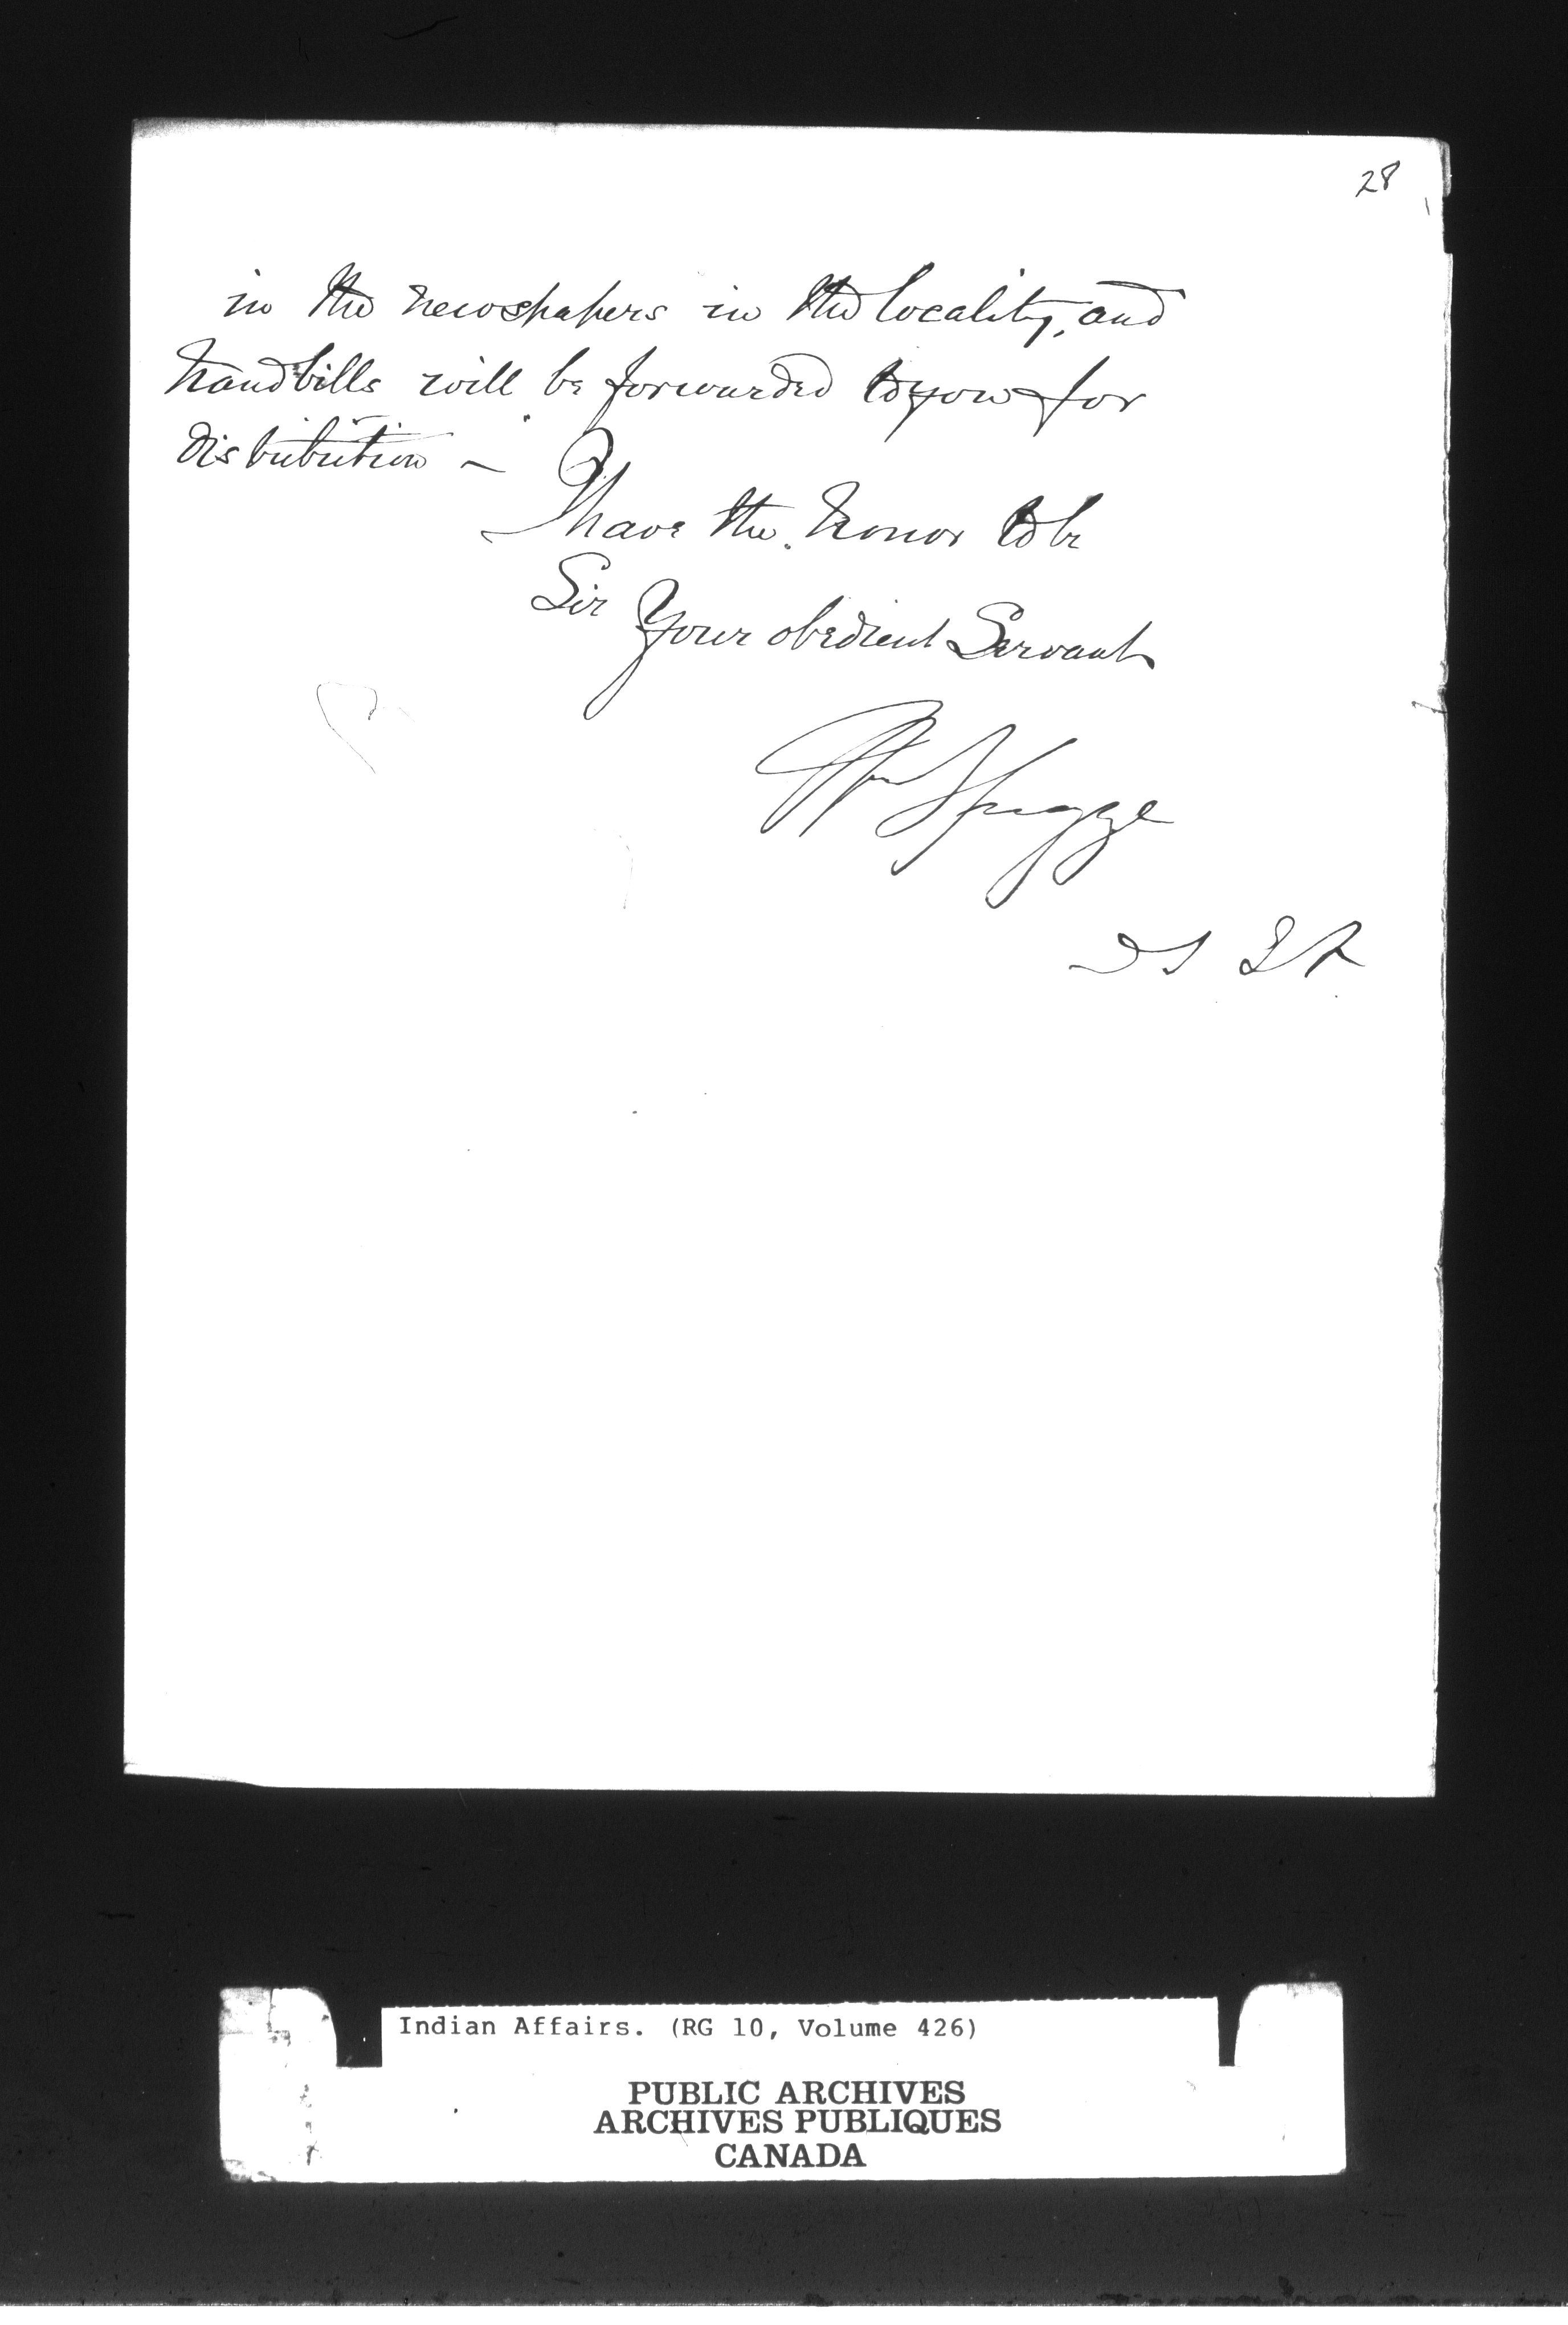 28
in the newspapers in the locality, and
handbills will be forwarded to you for
distribution –
I have the honor to be
Sir
Your obedient Servant
Wm Spragge
D S I A
Indian Affairs. (RG 10, Volume 426)
PUBLIC ARCHIVES
ARCHIVES PUBLIQUES
CANADA